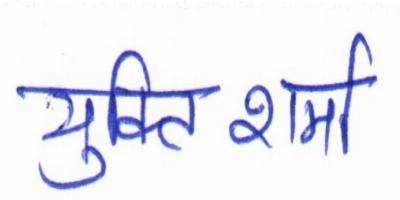 युक्ति शर्मा